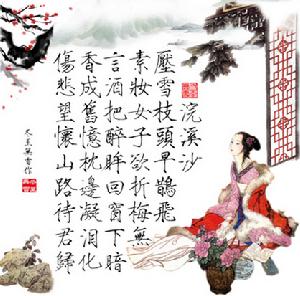 浣溪沙
壓雪枝頭早鵲飛
素妝女子欲折梅無
言酒把醉眸回窗下暗
香成舊憶枕邊凝泪化
傷悲望懷山路待君歸